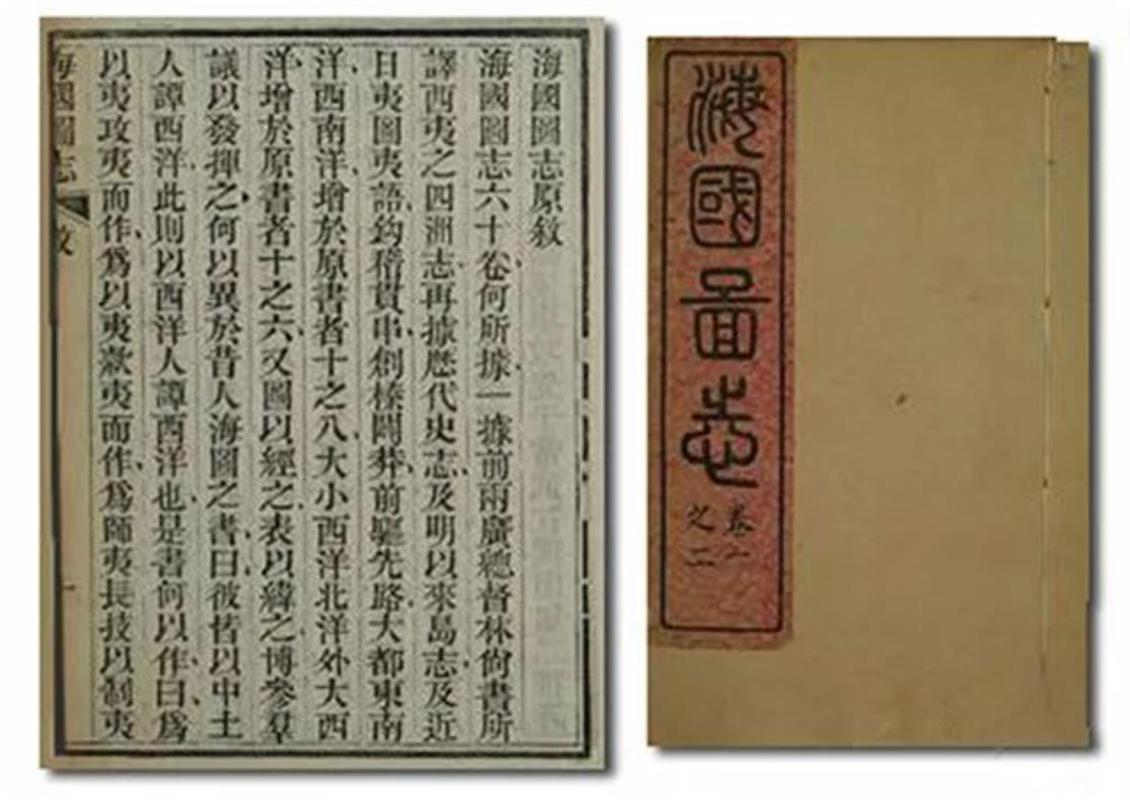 海國圖志原敘
海國圖志六十卷、何所據、一據前兩廣總督林尙書所
譯西夷之四洲志、再據歷代史志、及明以來島志、及近
日夷圖夷語、鈎稽貫串、創榛闢莽、前驅先路、大都東南
洋、西南洋、增於原書者十之八、大小西洋北洋外大西
洋、增於原書者十之六、又圖以經之、表以緯之、博參羣
議以發揮之、何以異於昔人海圖之書、曰、彼皆以中土
人譚西洋、此則以西洋人譚西洋也、是書何以作、曰、爲
以夷攻夷而作、爲以夷款夷而作、爲師夷長技以制夷
海國圖志 敘 一
海國圖志
卷一
之二